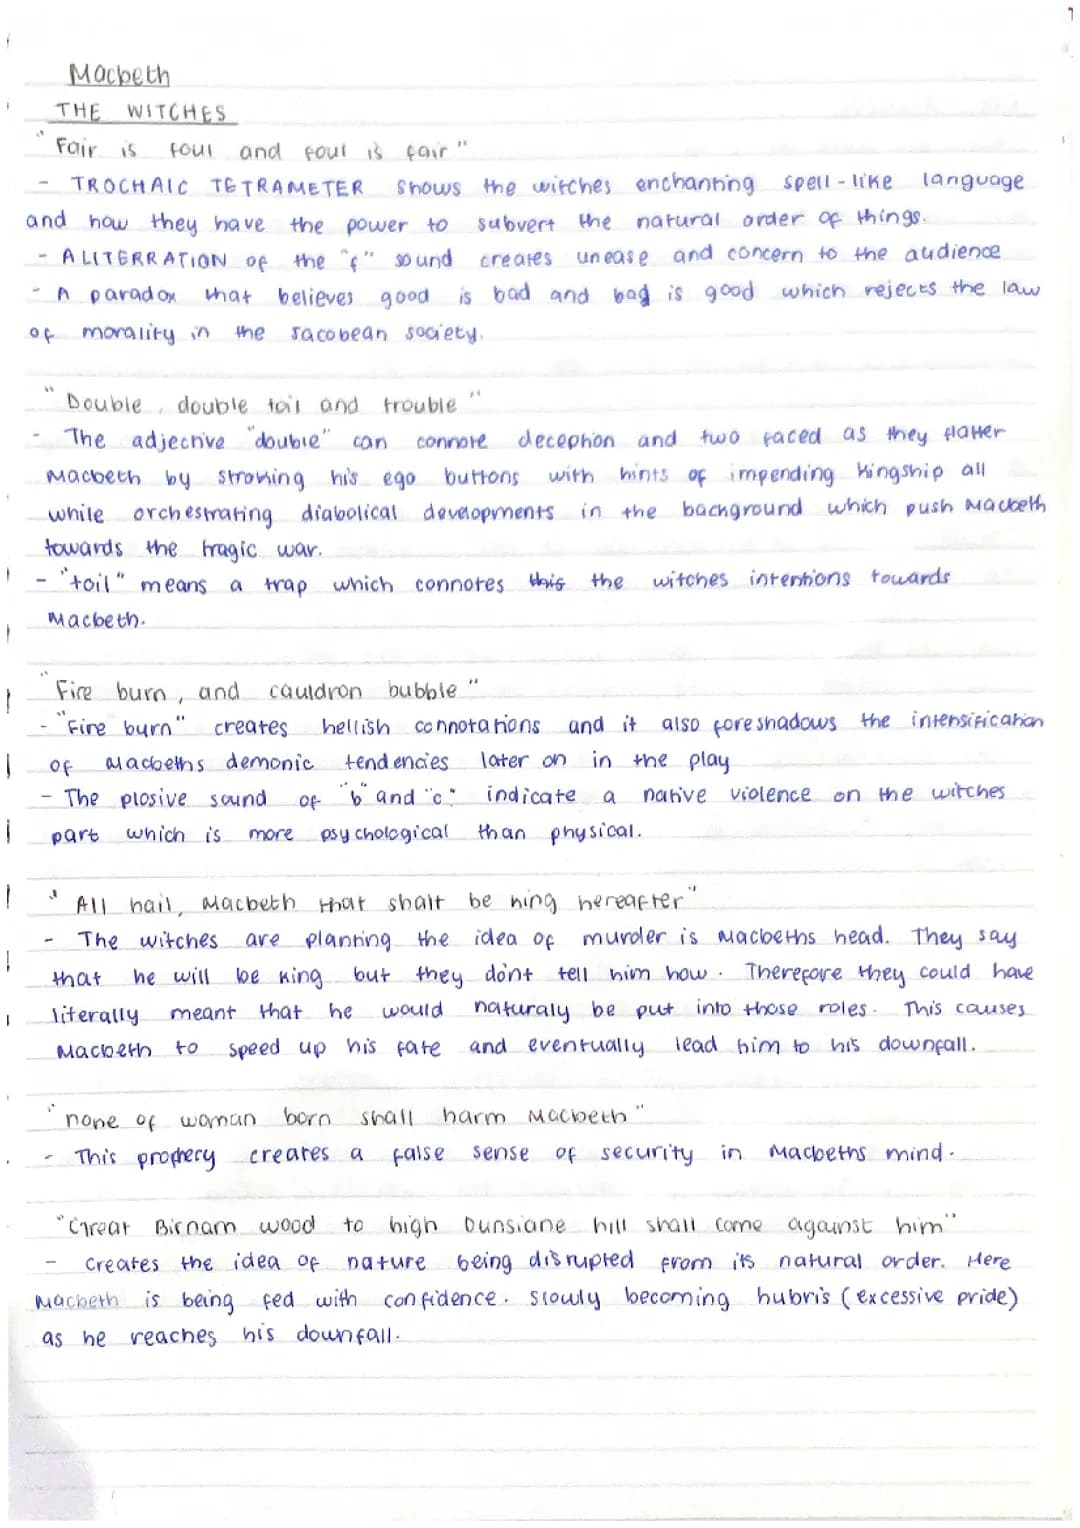 Macbeth
THE WITCHES
"Fair is foul and foul is fair"
- TROCHAIC TETRAMETER shows the witches enchanting spell-like language
and how they have the power to subvert the natural order of things.
- ALITERRATION of the "f" sound creates unease and concern to the audience
- A paradox that believes good is bad and bad is good which rejects the law
of morality in the Jacobean society.
"Double, double toil and trouble"
- The adjective "double" can connote deception and two faced as they flatter
Macbeth by stroking his ego buttons with hints of impending kingship all
while orchestrating diabolical developments in the background which push Macbeth
towards the tragic war.
- "toil" means a trap which connotes this the witches intentions towards
Macbeth.
"Fire burn, and cauldron bubble"
- "Fire burn" creates hellish connotations and it also foreshadows the intensification
of Macbeths demonic tendencies later on in the play
- The plosive sound of "b" and "c" indicate a native violence on the witches
part which is more psychological than physical.
"All hail, Macbeth that shalt be king hereafter"
- The witches are planting the idea of murder is Macbeths head. They say
that he will be king but they don't tell him how. Therefore they could have
literally meant that he would naturaly be put into those roles. This causes
Macbeth to speed up his fate and eventually lead him to his downfall.
"none of woman born shall harm Macbeth"
- This prophery creates a false sense of security in Macbeths mind.
"Great Birnam wood to high Dunsiane hill shall come against him"
- Creates the idea of nature being disrupted from its natural order. Here
Macbeth is being fed with confidence. slowly becoming hubris (excessive pride)
as he reaches his downfall.